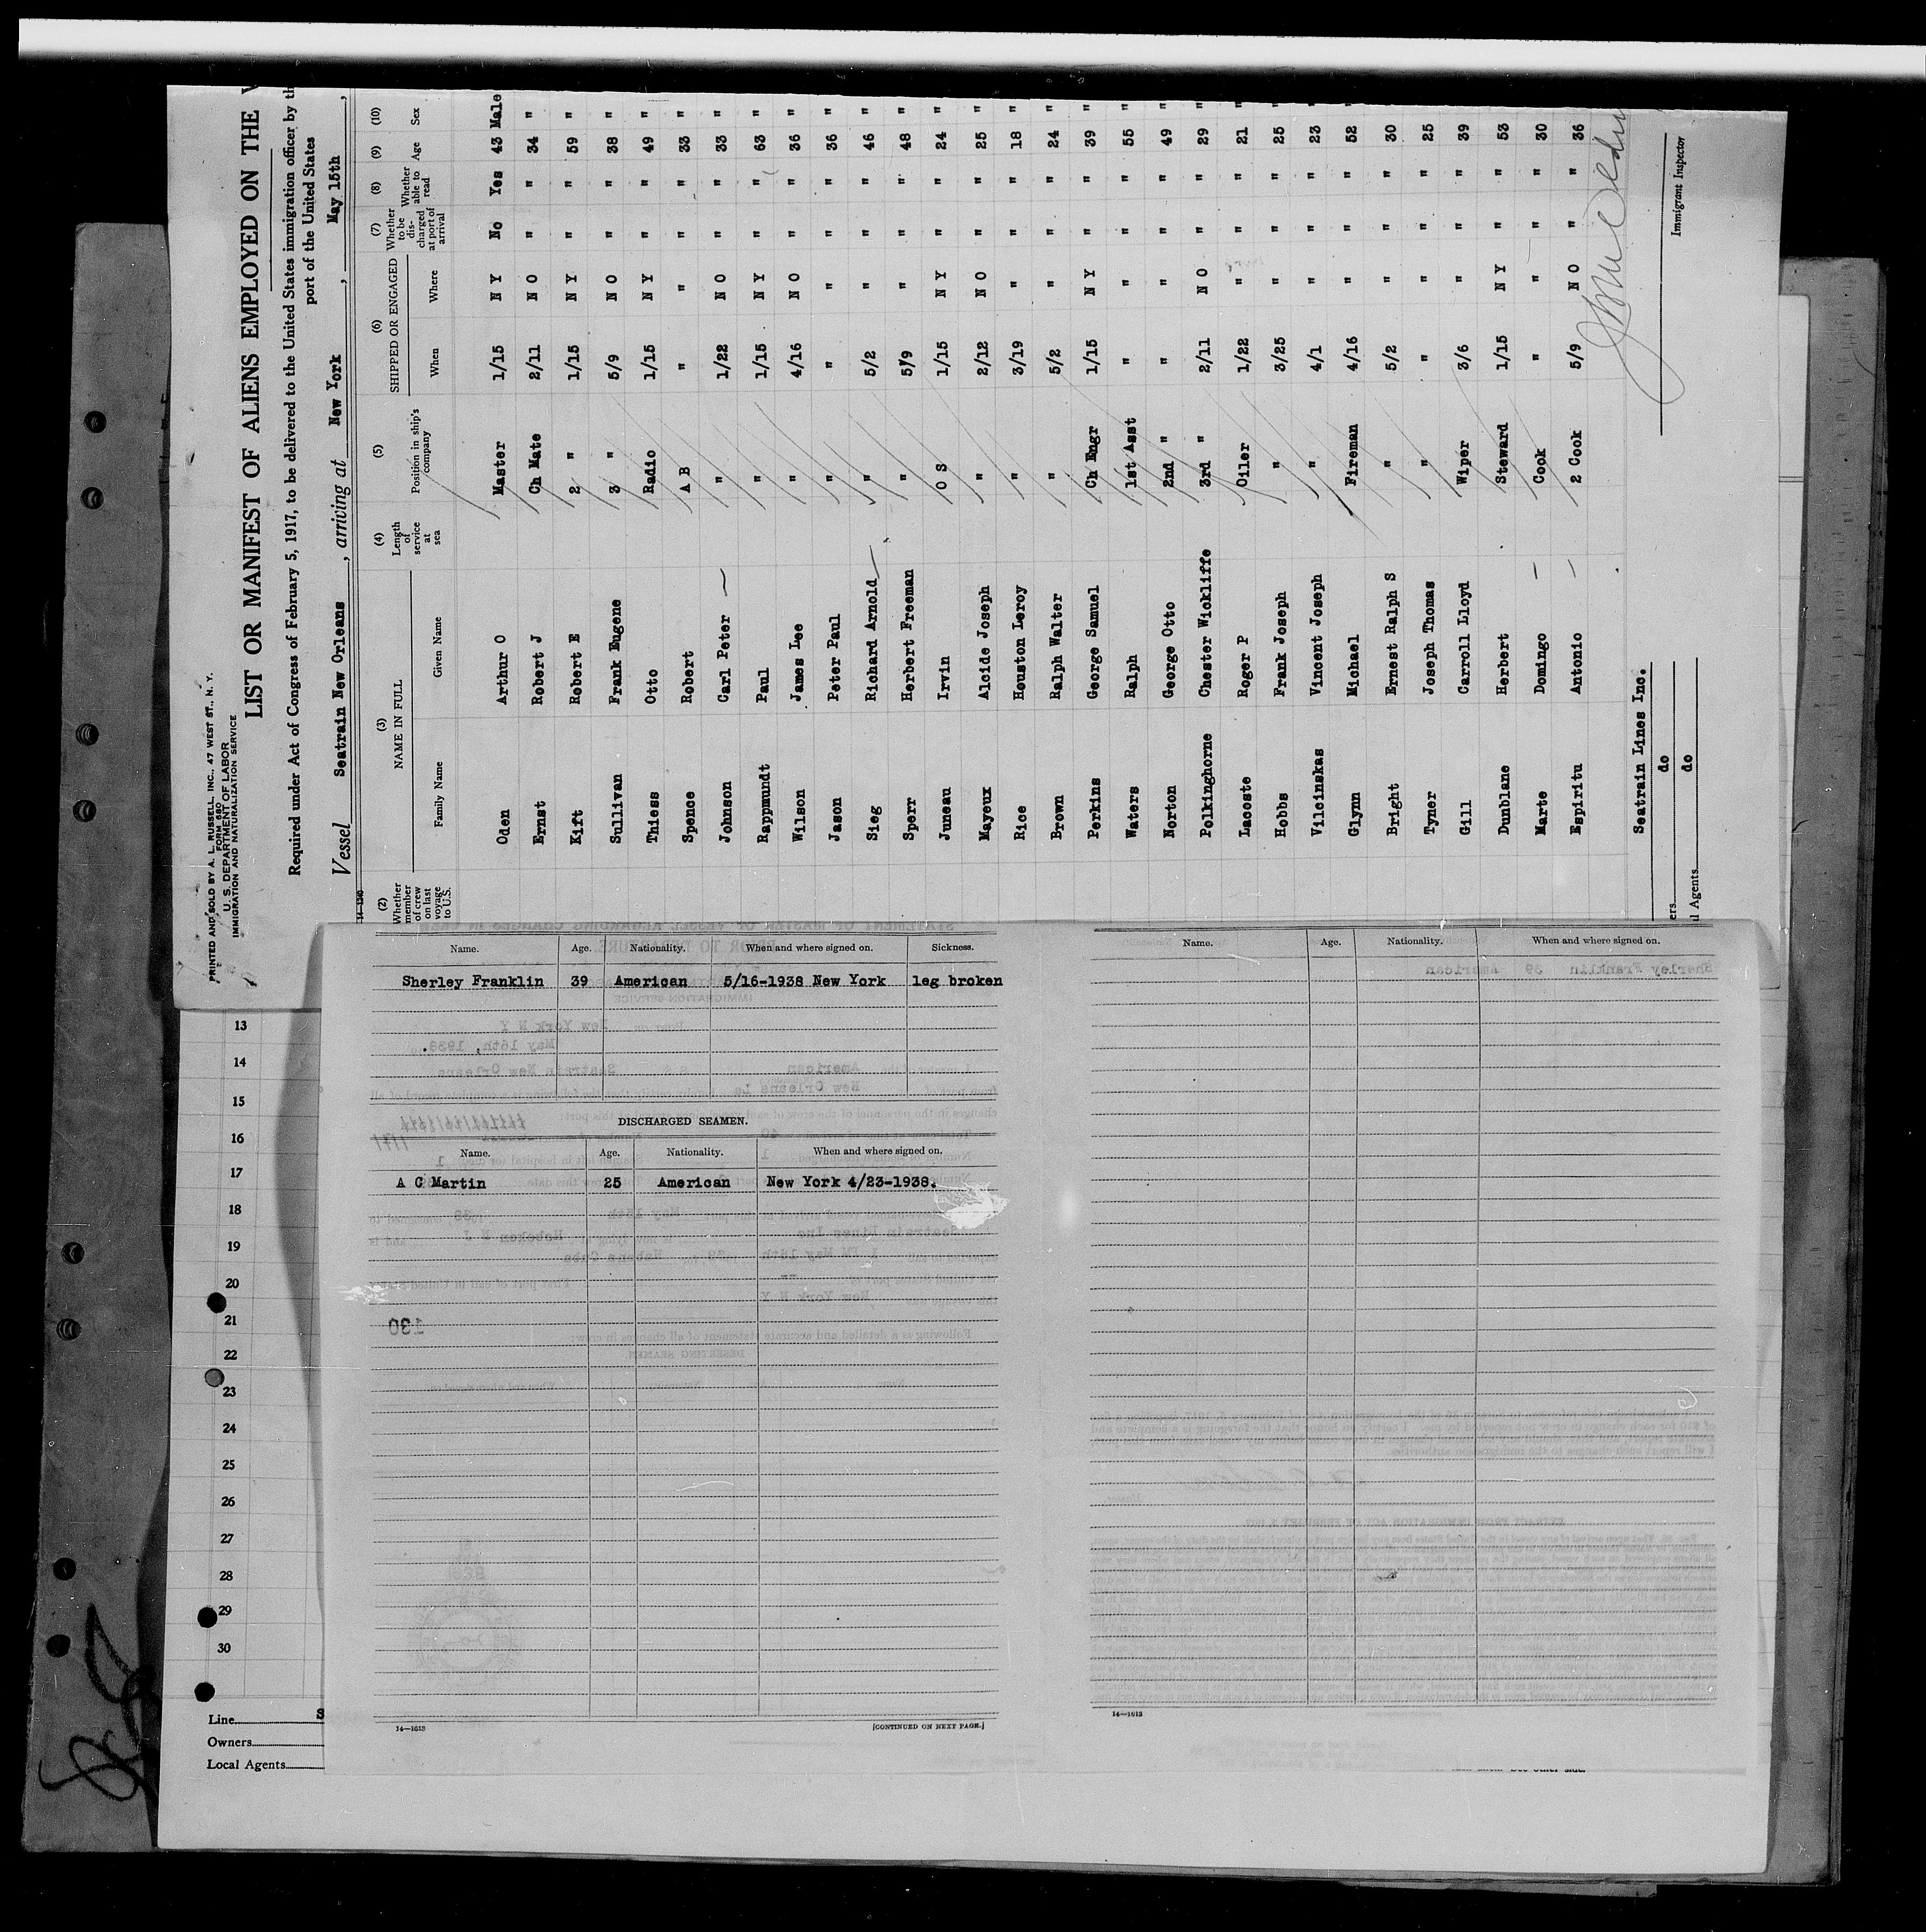 PRINTED AND SOLD BY A. L. RUSSELL, INC., 47 WEST ST., N. Y.
FORM 680
U. S. DEPARTMENT OF LABOR
IMMIGRATION AND NATURALIZATION SERVICE
LIST OR MANIFEST OF ALIENS EMPLOYED ON THE
Required under Act of Congress of February 5, 1917, to be delivered to the United States immigration officer by th
port of the United States
Vessel Seatrain New Orleans, arriving at New York, May 15th,
14-1240
(2) (3) (4) (5) (6) (7) (8) (9) (10)
Whether member of crew on last voyage to U.S. NAME IN FULL Length of service at sea Position in ship's company SHIPPED OR ENGAGED Whether to be discharged at port of arrival Whether able to read Age Sex
Family Name Given Name When Where
Oden Arthur O Master 1/15 N Y No Yes 43 Male
Ernst Robert J Ch Mate 2/11 N O " " 34 "
Kift Robert E 2 " 1/15 N Y " " 59 "
Sullivan Frank Eugene 3 " 5/9 N O " " 38 "
Thiess Otto Radio 1/15 N Y " " 49 "
Spence Robert A B " " " " 33 "
Johnson Carl Peter " 1/22 N O " " 33 "
Rappmundt Paul " 1/15 N Y " " 63 "
Wilson James Lee " 4/16 N O " " 36 "
Jason Peter Paul " " " " " 36 "
Sieg Richard Arnold " 5/2 " " " 46 "
Sperr Herbert Freeman " 5/9 " " " 48 "
Juneau Irvin O S 1/15 N Y " " 24 "
Mayeux Alcide Joseph " 2/12 N O " " 25 "
Rice Houston Leroy " 3/19 " " " 18 "
Brown Ralph Walter " 5/2 " " " 24 "
Perkins George Samuel Ch Engr 1/15 N Y " " 39 "
Waters Ralph 1st Asst " " " " 55 "
Norton George Otto 2nd " " " " " 49 "
Polkinghorne Chester Wickliffe 3rd " 2/11 N O " " 29 "
Lacoste Roger P Oiler 1/22 " " " 21 "
Hobbs Frank Joseph " 3/25 " " " 25 "
Vilcinskas Vincent Joseph " 4/1 " " " 23 "
Glynn Michael Fireman 4/16 " " " 52 "
Bright Ernest Ralph S " 5/2 " " " 30 "
Tyner Joseph Thomas " " " " " 25 "
Gill Carroll Lloyd Wiper 3/6 " " " 39 "
Dunblane Herbert Steward 1/15 N Y " " 53 "
Marte Domingo Cook " " " " 30 "
Espiritu Antonio 2 Cook 5/9 N O " " 36 "
Seatrain Lines Inc.
ers do
l Agents do
Immigrant Inspector
Name. Age. Nationality. When and where signed on. Sickness.
Sherley Franklin 39 American 5/16-1938 New York leg broken
DISCHARGED SEAMEN.
Name. Age. Nationality. When and where signed on.
A C Martin 25 American New York 4/23-1938.
14—1613 [CONTINUED ON NEXT PAGE.]
Name. Age. Nationality. When and where signed on.
14—1613
13
14
15
16
17
18
19
20
21
22
23
24
25
26
27
28
29
30
Line S
Owners
Local Agents